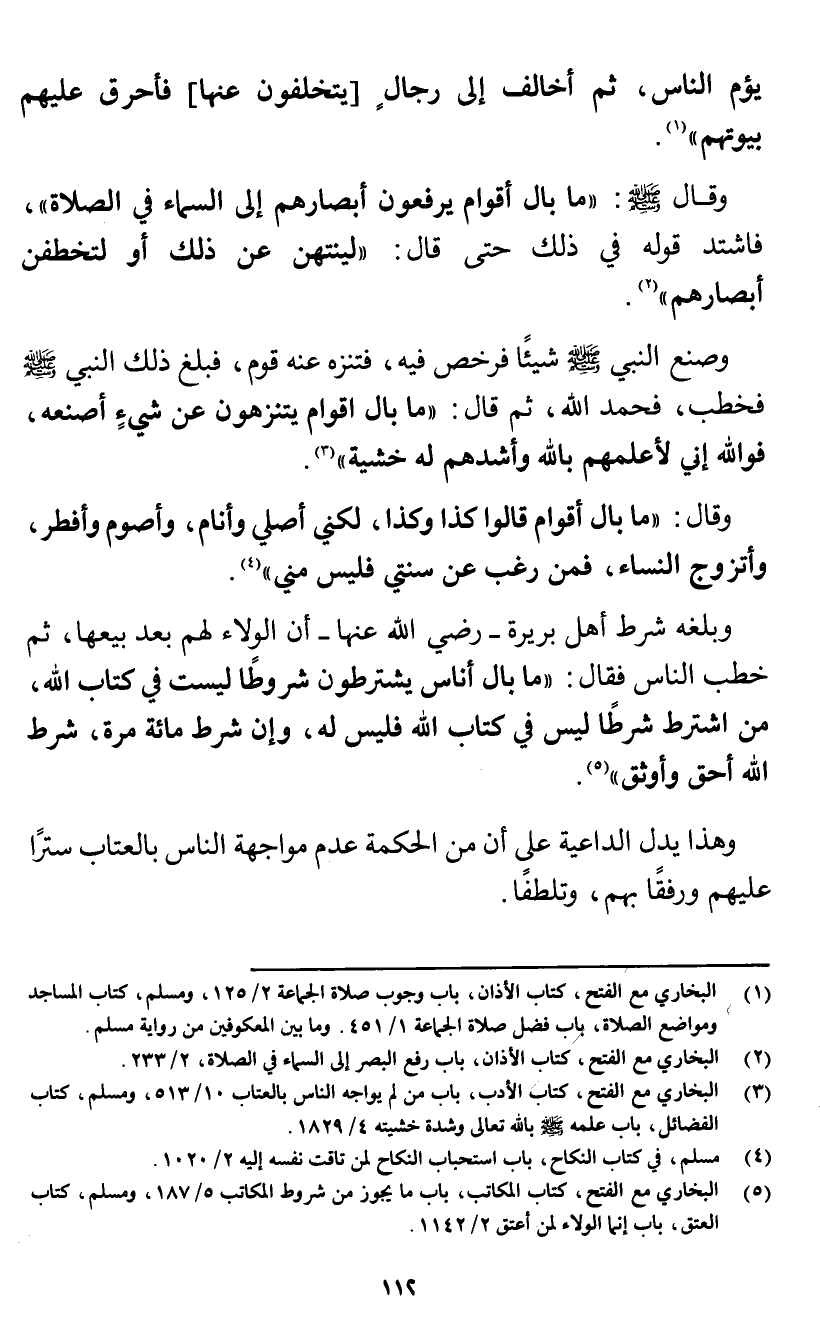 يؤم الناس، ثم أخالف إلى رجالٍ [يتخلفون عنها] فأحرق عليهم
بيوتهم»(١).
وقـال ﷺ: «ما بال أقوام يرفعون أبصارهم إلى السماء في الصلاة»،
فاشتد قوله في ذلك حتى قال: «لينتهن عن ذلك أو لتخطفن
أبصارهم»(٢).
وصنع النبي ﷺ شيئًا فرخص فيه، فتنزه عنه قوم، فبلغ ذلك النبي ﷺ
فخطب، فحمد الله، ثم قال: «ما بال اقوام يتنزهون عن شيءٍ أصنعه،
فوالله إني لأعلمهم بالله وأشدهم له خشية»(٣).
وقال: «ما بال أقوام قالوا كذا وكذا، لكني أصلي وأنام، وأصوم وأفطر،
وأتزوج النساء، فمن رغب عن سنتي فليس مني»(٤).
وبلغه شرط أهل بريرة ـ رضي الله عنها ـ أن الولاء لهم بعد بيعها، ثم
خطب الناس فقال: «ما بال أناس يشترطون شروطًا ليست في كتاب الله،
من اشترط شرطًا ليس في كتاب الله فليس له، وإن شرط مائة مرة، شرط
الله أحق وأوثق»(٥).
وهذا يدل الداعية على أن من الحكمة عدم مواجهة الناس بالعتاب سترًا
عليهم ورفقًا بهم، وتلطفًا.
(١) البخاري مع الفتح، كتاب الأذان، باب وجوب صلاة الجماعة ٢/ ١٢٥، ومسلم، كتاب المساجد
ومواضع الصلاة، باب فضل صلاة الجماعة ١/ ٤٥١. وما بين المعكوفين من رواية مسلم.
(٢) البخاري مع الفتح، كتاب الأذان، باب رفع البصر إلى السماء في الصلاة، ٢/ ٢٣٣.
(٣) البخاري مع الفتح، كتاب الأدب، باب من لم يواجه الناس بالعتاب ١٠/ ٥١٣، ومسلم، كتاب
الفضائل، باب علمه ﷺ بالله تعالى وشدة خشيته ٤/ ١٨٢٩.
(٤) مسلم، في كتاب النكاح، باب استحباب النكاح لمن تاقت نفسه إليه ٢/ ١٠٢٠.
(٥) البخاري مع الفتح، كتاب المكاتب، باب ما يجوز من شروط المكاتب ٥/ ١٨٧، ومسلم، كتاب
العتق، باب إنما الولاء لمن أعتق ٢/ ١١٤٢.
١١٢